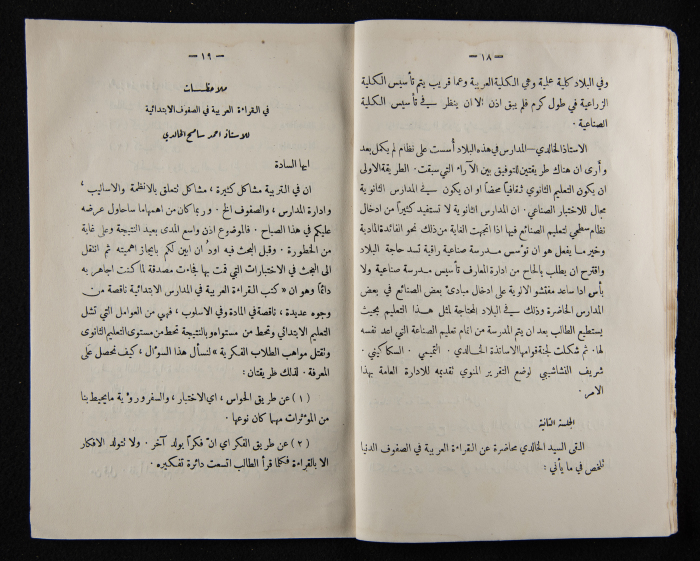 — ١٨ —
وفي البلاد كلية علمية وهي الكلية العربية وعما قريب يتم تأسيس الكلية
الزراعية في طول كرم فلم يبق اذن الا ان ينظر في تأسيس الكلية
الصناعية .
الاستاذ الخالدي — المدارس في هذه البلاد أسست على نظام لم يكمل بعد
وأرى ان هناك طريقتين للتوفيق بين الآراء التي سبقت . الطريقة الاولى
ان يكون التعليم الثانوي ثقافياً محضاً او ان يكون في المدارس الثانوية
مجال للاختبار الصناعي . ان المدارس الثانوية لا تستفيد كثيراً من ادخال
نظام سطحي لتعليم الصنائع فيها اذا اتجهت الغاية من ذلك نحو الفائدة المادية
وخير ما يفعل هو ان نؤسس مدرسة صناعية راقية تسد حاجة البلاد
واقترح ان يطلب بالحاح من ادارة المعارف تأسيس مدرسة صناعية ولا
بأس اذا ساعد مفتشو الالوية على ادخال مبادئ بعض الصنائع في بعض
المدارس الحاضرة وذلك في البلاد المحتاجة لمثل هذا التعليم بحيث
يستطيع الطالب بعد ان يتم المدرسة من اتمام تعليم الصناعة التي اعد نفسه
لها . ثم شكلت لجنة قوامها الاساتذة الخالدي . التميمي . السكاكيني .
شريف النشاشيبي لوضع التقرير المنوي تقديمه للادارة العامة بهذا
الامر .
الجلسة الثانية
القى السيد الخالدي محاضرة عن القراءة العربية في الصفوف الدنيا
تلخص في ما يأتي :
— ١٩ —
ملاحظات
في القراءة العربية في الصفوف الابتدائية
للاستاذ احمد سامح الخالدي
ايها السادة
ان في التربية مشاكل كثيرة ، مشاكل تتعلق بالانظمة والاساليب ،
وادارة المدارس ، والصفوف الخ . وربما كان من اهمها ما سأحاول عرضه
عليكم في هذا الصباح . فالموضوع اذن واسع المدى بعيد النتيجة وعلى غاية
من الخطورة . وقبل البحث فيه اودّ ان ابين لكم بايجاز اهميته ثم انتقل
الى البحث في الاختبارات التي قمت بها فجاءت مصدقة لما كنت اجاهر به
دائماً وهو ان « كتب القراءة العربية في المدارس الابتدائية ناقصة من
وجوه عديدة ، ناقصة في المادة وفي الاسلوب ، فهي من العوامل التي تشل
التعليم الابتدائي وتحط من مستواه وبالنتيجة تحط من مستوى التعليم الثانوي
وتقتل مواهب الطلاب الفكرية » لنسأل هذا السؤال ، كيف نحصل على
المعرفة . لذلك طريقتان :
( ١ ) عن طريق الحواس ، اي الاختبار ، والسفر ورؤية ما يحيط بنا
من المؤثرات مهما كان نوعها .
( ٢ ) عن طريق الفكر اي انّ فكراً يولد آخر . ولا تتولد الافكار
الا بالقراءة فكلما قرأ الطالب اتسعت دائرة تفكيره .